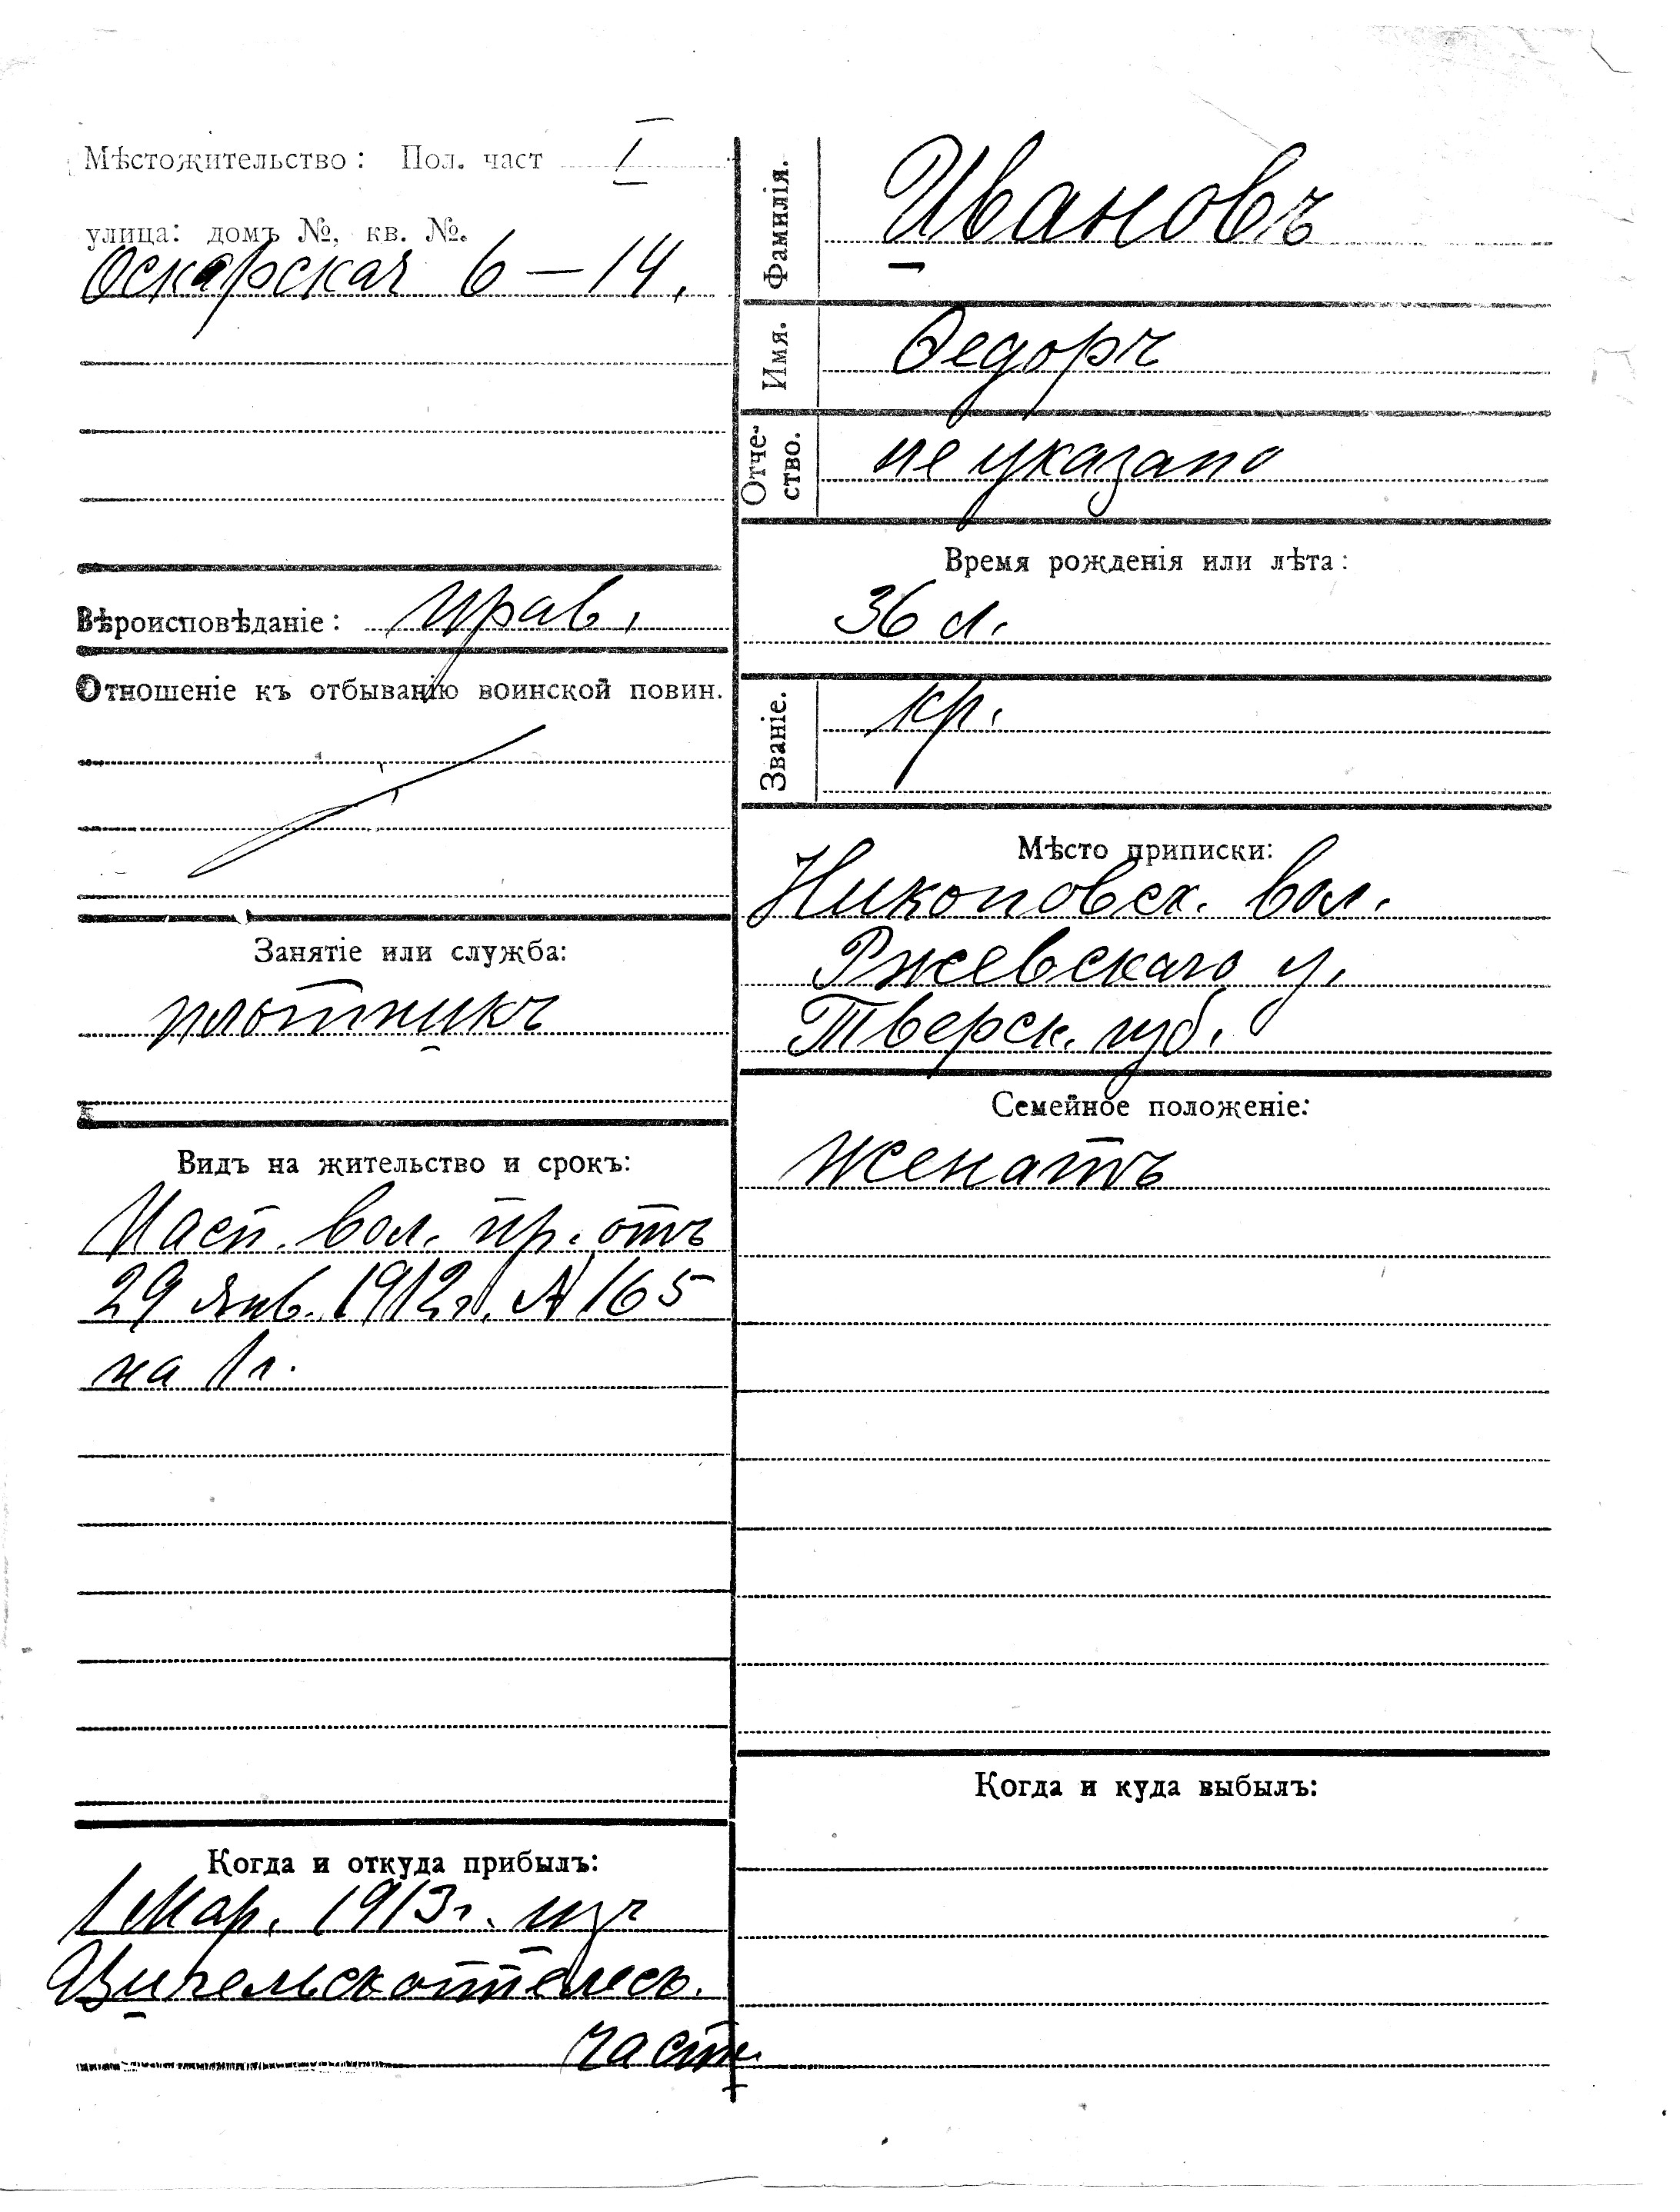 Мѣстожительство: Пол. част I
улица: домъ №, кв. №.
Оскарская 6 — 14.
Вѣроисповѣданіе: прав.
Отношеніе къ отбыванію воинской повин.
Занятіе или служба:
плотникъ
Видъ на жительство и срокъ:
Пасп. вол. пр. отъ
29 Янв. 1912 г. № 165
на 1 г.
Когда и откуда прибылъ:
1 Мар. 1913 г. изъ
част.
Фамилія. Ивановъ
Имя. Ѳедоръ
Отче-
ство. не указано
Время рожденія или лѣта:
36 л.
Званіе. кр.
Мѣсто приписки:
вол.
Ржевскаго у.
Тверск. губ.
Семейное положеніе:
женатъ
Когда и куда выбылъ: